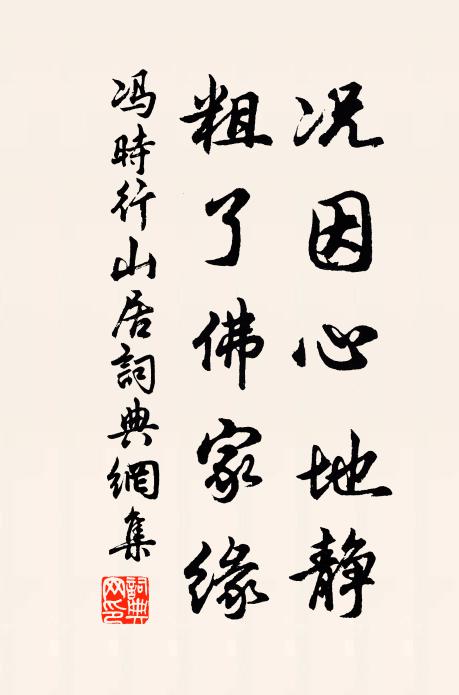 况因心地静
粗了佛家缘
冯時行山居詞典網集
詞典网印